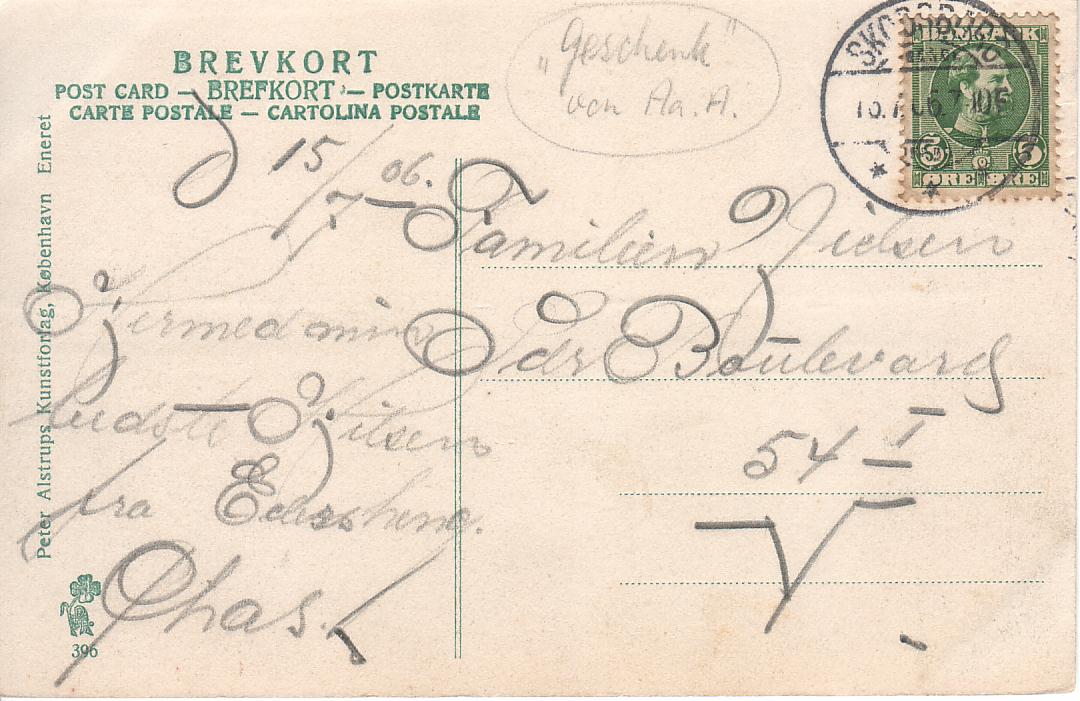 BREVKORT
POST CARD — BREFKORT — POSTKARTE
CARTE POSTALE — CARTOLINA POSTALE
Peter Alstrups Kunstforlag, København Eneret
396
"Geschenk"
von Aa. A.
15/7–06.
Hermed min
bedste Hilsen
fra
Chas.
Familien Nielsen
Sdr Boulevard
54 I
V
DANMARK
5 5
ØRE ØRE